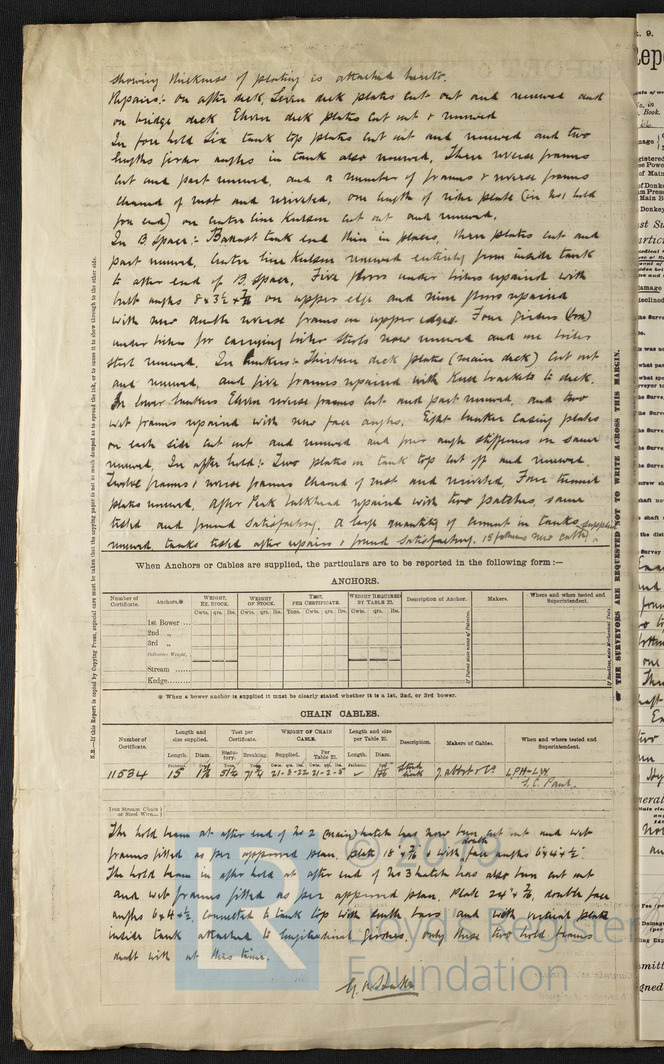 showing thickness of plating is attached hereto.
Repairs:- On after deck, Seven deck plates cut out and renewed and
on bridge deck Eleven deck plates cut out & renewed
In fore hold Six tank top plates cut out and renewed and two
lengths girder angles in tank also renewed. Three reverse frames
cut and part renewed, and a number of frames & reverse frames
cleaned of rust and reriveted, one length of rider plate (in No 1 hold
fore end) on centre line Keelson cut out and renewed.
In B Space:- Ballast tank end thin in places, three plates cut and
part renewed. Centre line Keelson renewed entirely from inside tank
to after end of B. Space. Five floors under boilers repaired with
bulb angles 8 x 3½ x on upper edge and nine floors repaired
with new double reverse frames on upper edges. Four girders
under boilers for carrying boiler stools now renewed and one boiler
stool renewed. In bunkers:- Thirteen deck plates (main deck) cut out
and renewed, and five frames repaired with knee brackets to deck.
In lower bunkers Eleven reverse frames cut and part renewed, and two
web frames repaired with new face angles. Eight bunker casing plates
on each side cut out and renewed and four angle stiffeners on same
renewed. In after hold:- Two plates in tank top cut off and renewed.
Twelve frames & reverse frames cleaned of rust and reriveted. Four tunnel
plates renewed. After Peak bulkhead repaired with two patches, same
tested and found satisfactory. A large quantity of cement in tanks
renewed, tanks tested after repairs & found satisfactory. 15 fathoms new cable supplied
When Anchors or Cables are supplied, the particulars are to be reported in the following form :—
ANCHORS.
Number of Certificate. Anchors.* WEIGHT, EX. STOCK. WEIGHT OF STOCK. TEST, PER CERTIFICATE. WEIGHT REQUIRED BY TABLE 22. Description of Anchor. Makers. Where and when tested and Superintendent.
Cwts. qrs. lbs. Cwts. qrs. lbs. Tons. Cwts. qrs. lbs. Cwts. qrs. lbs.
1st Bower ...
2nd „
3rd „
Collective Weight,
Stream ......
Kedge.........
* When a bower anchor is supplied it must be clearly stated whether it is a 1st, 2nd, or 3rd bower.
CHAIN CABLES.
Number of Certificate. Length and size supplied. Test per Certificate. WEIGHT OF CHAIN CABLE. Length and size per Table 22. Description. Makers of Cables. When and where tested and Superintendent.
Length. Diam. Statutory. Breaking. Supplied. Per Table 22. Length. Diam.
11534 15 21-3-22 21-2-5 Stud link J. Abbot & Co L.P.H-L.W.
Iron Stream Chain or Steel Wire...
The hold beam at after end of No 2 (main) hatch has now been cut out and web
frames fitted as per approved plan, plate 18" x with double face angles 6 x 4 x ½
The hold beam in after hold at after end of No 3 hatch has also been cut out
and web frames fitted as per approved plan. Plate 24" x double face
angles 6 x 4 x ½, connected to tank top with double bars and with vertical plate
inside tank attached to longitudinal girders. Only these two hold beams
dealt with at this time.
© 2019
LR
Lloyd's Register
Foundation
N.B.—If this Report is copied by Copying Press, especial care must be taken that the copying paper is not so much damped as to spread the ink, or to cause it to show through to the other side.
THE SURVEYORS ARE REQUESTED NOT TO WRITE ACROSS THIS MARGIN.